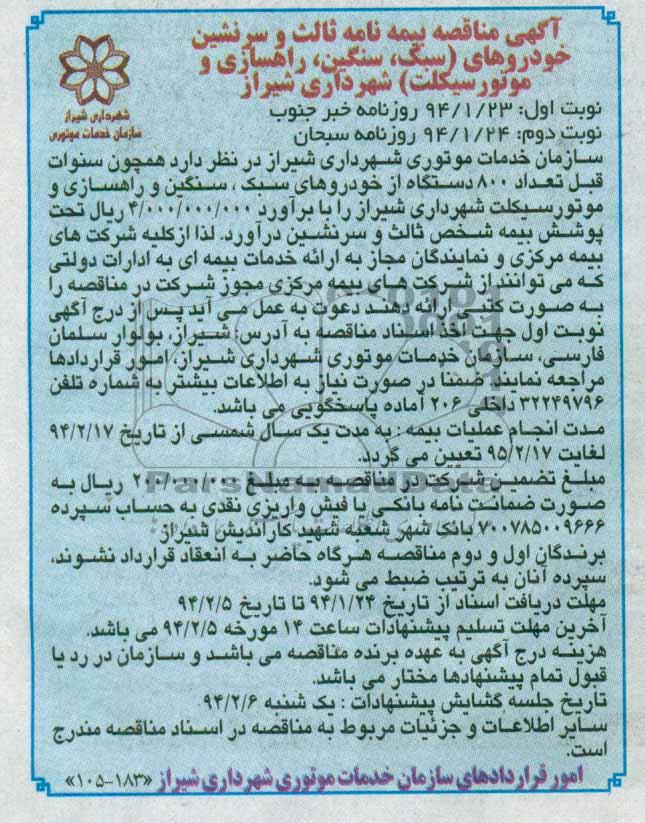 آگهی مناقصه بیمه نامه ثالث و سرنشین
خودروهای (سبک، سنگین، راهسازی و
موتورسیکلت) شهرداری شیراز
شهرداری شیراز
سازمان خدمات موتوری
نوبت اول: ۹۴/۱/۲۳ روزنامه خبر جنوب
نوبت دوم: ۹۴/۱/۲۴ روزنامه سبحان
سازمان خدمات موتوری شهرداری شیراز در نظر دارد همچون سنوات
قبل تعداد ۸۰۰ دستگاه از خودروهای سبک ، سنگین و راهسازی و
موتورسیکلت شهرداری شیراز را با برآورد ۴/۰۰۰/۰۰۰/۰۰۰ ریال تحت
پوشش بیمه شخص ثالث و سرنشین درآورد. لذا ازکلیه شرکت های
بیمه مرکزی و نمایندگان مجاز به ارائه خدمات بیمه ای به ادارات دولتی
که می توانند از شرکت های بیمه مرکزی مجوز شرکت در مناقصه را
به صورت کتبی ارائه دهند دعوت به عمل می آید پس از درج آگهی
نوبت اول جهت اخذ اسناد مناقصه به آدرس: شیراز، بولوار سلمان
فارسی، سازمان خدمات موتوری شهرداری شیراز، امور قراردادها
مراجعه نمایند ضمنا در صورت نیاز به اطلاعات بیشتر به شماره تلفن
۳۲۲۴۹۷۹۶ داخلی ۲۰۶ آماده پاسخگویی می باشد.
مدت انجام عملیات بیمه : به مدت یک سال شمسی از تاریخ ۹۴/۲/۱۷
لغایت ۹۵/۲/۱۷ تعیین می گردد.
مبلغ تضمین شرکت در مناقصه به مبلغ ۲۰۰/۰۰۰/۰۰۰ ریال به
صورت ضمانت نامه بانکی یا فیش واریزی نقدی به حساب سپرده
۷۰۰۷۸۵۰۰۹۶۶۶ بانک شهر شعبه شهید کاراندیش شیراز
برندگان اول و دوم مناقصه هرگاه حاضر به انعقاد قرارداد نشوند،
سپرده آنان به ترتیب ضبط می شود.
مهلت دریافت اسناد از تاریخ ۹۴/۱/۲۴ تا تاریخ ۹۴/۲/۵
آخرین مهلت تسلیم پیشنهادات ساعت ۱۴ مورخه ۹۴/۲/۵ می باشد.
هزینه درج آگهی به عهده برنده مناقصه می باشد و سازمان در رد یا
قبول تمام پیشنهادها مختار می باشد.
تاریخ جلسه گشایش پیشنهادات : یک شنبه ۹۴/۲/۶
سایر اطلاعات و جزئیات مربوط به مناقصه در اسناد مناقصه مندرج
است.
امور قراردادهای سازمان خدمات موتوری شهرداری شیراز «۱۸۳-۱۰۵»
ParsNamadData